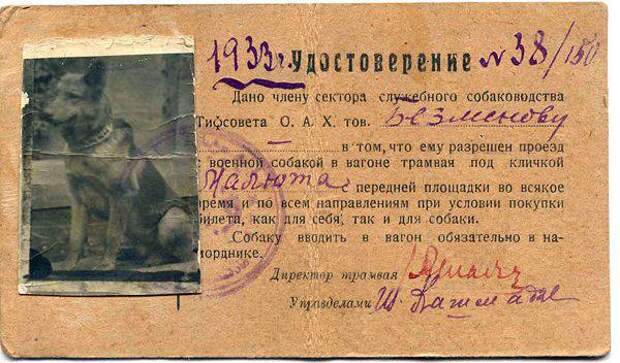 1933 г. Удостоверение № 38/150
Дано члену сектора служебного собаководства
Тифсовета О. А. Х. тов. Безменову
в том, что ему разрешен проезд
с военной собакой в вагоне трамвая под кличкой
Малюта с передней площадки во всякое
время и по всем направлениям при условии покупки
билета, как для себя, так и для собаки.
Собаку вводить в вагон обязательно в на-
морднике.
Директор трамвая
Управделами